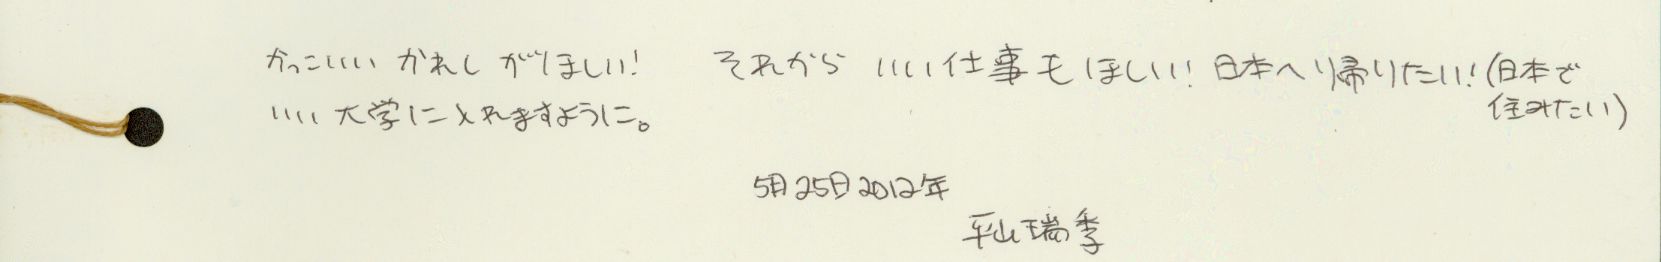 かっこいい かれしがほしい! それから いい仕事もほしい! 日本へ帰りたい! (日本で
住みたい)
いい大学に入れますように。
5月25日2012年
平山瑞季